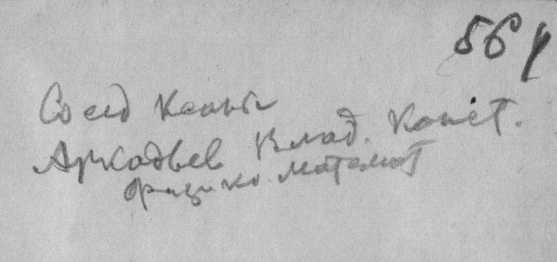 56
Соед
Аркадьев Влад. Конст.
физико-математ